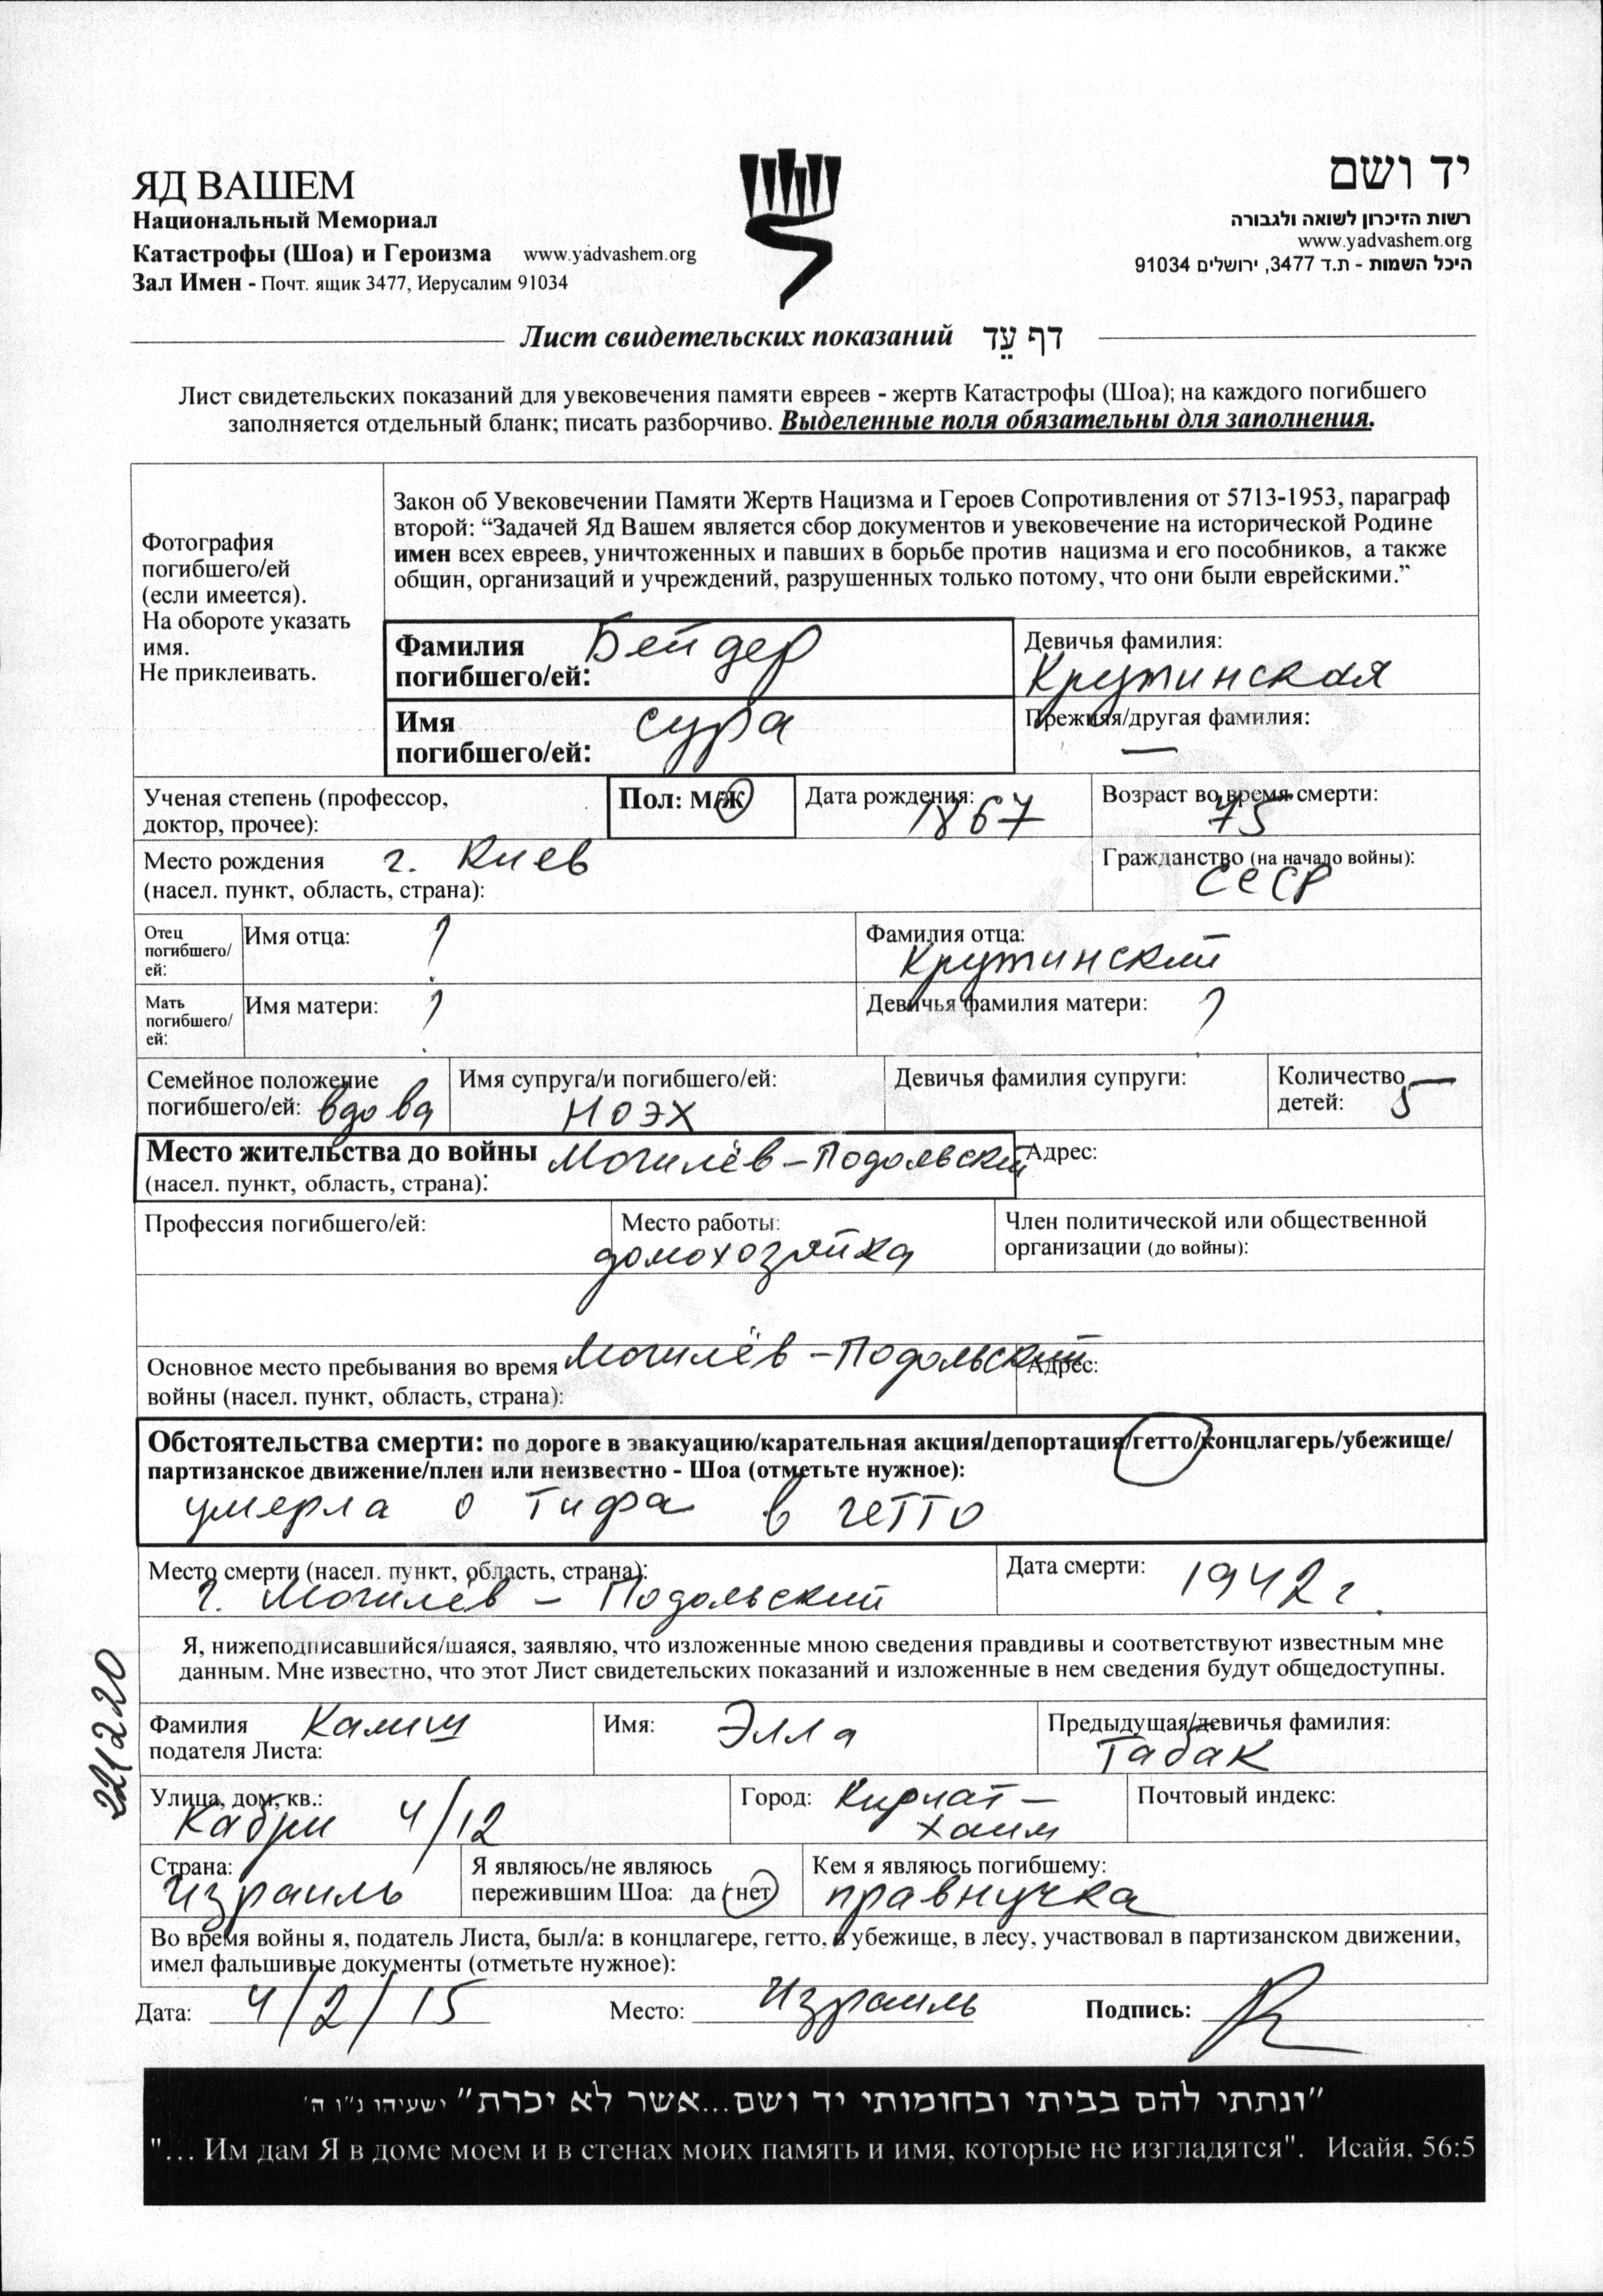 ЯД ВАШЕМ
Национальный Мемориал
Катастрофы (Шоа) и Героизма www.yadvashem.org
Зал Имен - Почт. ящик 3477, Иерусалим 91034
יד ושם
רשות הזיכרון לשואה ולגבורה
www.yadvashem.org
היכל השמות - ת.ד 3477, ירושלים 91034
Лист свидетельских показаний דף עֵד
Лист свидетельских показаний для увековечения памяти евреев - жертв Катастрофы (Шоа); на каждого погибшего
заполняется отдельный бланк; писать разборчиво. Выделенные поля обязательны для заполнения.
Фотография
погибшего/ей
(если имеется).
На обороте указать
имя.
Не приклеивать.
Закон об Увековечении Памяти Жертв Нацизма и Героев Сопротивления от 5713-1953, параграф
второй: “Задачей Яд Вашем является сбор документов и увековечение на исторической Родине
имен всех евреев, уничтоженных и павших в борьбе против нацизма и его пособников, а также
общин, организаций и учреждений, разрушенных только потому, что они были еврейскими.”
Фамилия
погибшего/ей: Бейдер
Девичья фамилия:
Крутинская
Имя
погибшего/ей: Сура
Прежняя/другая фамилия:
—
Ученая степень (профессор,
доктор, прочее):
Пол: М/Ж
Дата рождения:
1867
Возраст во время смерти:
75
Место рождения г. Киев
(насел. пункт, область, страна):
Гражданство (на начало войны):
СССР
Отец
погибшего/
ей:
Имя отца: ?
Фамилия отца:
Крутинский
Мать
погибшего/
ей:
Имя матери: ?
Девичья фамилия матери: ?
Семейное положение
погибшего/ей: вдова
Имя супруга/и погибшего/ей:
Ноэх
Девичья фамилия супруги:
Количество
детей: 5
Место жительства до войны Могилёв-Подольский
(насел. пункт, область, страна):
Адрес:
Профессия погибшего/ей:
Место работы:
домохозяйка
Член политической или общественной
организации (до войны):
Основное место пребывания во время Могилёв-Подольский
войны (насел. пункт, область, страна):
Адрес:
Обстоятельства смерти: по дороге в эвакуацию/карательная акция/депортация/гетто/концлагерь/убежище/
партизанское движение/плен или неизвестно - Шоа (отметьте нужное):
умерла о тифа в гетто
Место смерти (насел. пункт, область, страна):
г. Могилёв - Подольский
Дата смерти: 1942 г.
Я, нижеподписавшийся/шаяся, заявляю, что изложенные мною сведения правдивы и соответствуют известным мне
данным. Мне известно, что этот Лист свидетельских показаний и изложенные в нем сведения будут общедоступны.
221220
Фамилия Калиш
подателя Листа:
Имя: Элла
Предыдущая/девичья фамилия:
Табак
Улица, дом, кв.:
Кабри 4/12
Город: Кирьят-
Хаим
Почтовый индекс:
Страна:
Израиль
Я являюсь/не являюсь
пережившим Шоа: да/нет
Кем я являюсь погибшему:
правнучка
Во время войны я, податель Листа, был/а: в концлагере, гетто, в убежище, в лесу, участвовал в партизанском движении,
имел фальшивые документы (отметьте нужное):
Дата: 4/2/15 Место: Израиль Подпись:
"ונתתי להם בביתי ובחומותי יד ושם...אשר לא יכרת" ישעיהו נ"ו ה'
"... Им дам Я в доме моем и в стенах моих память и имя, которые не изгладятся". Исайя, 56:5